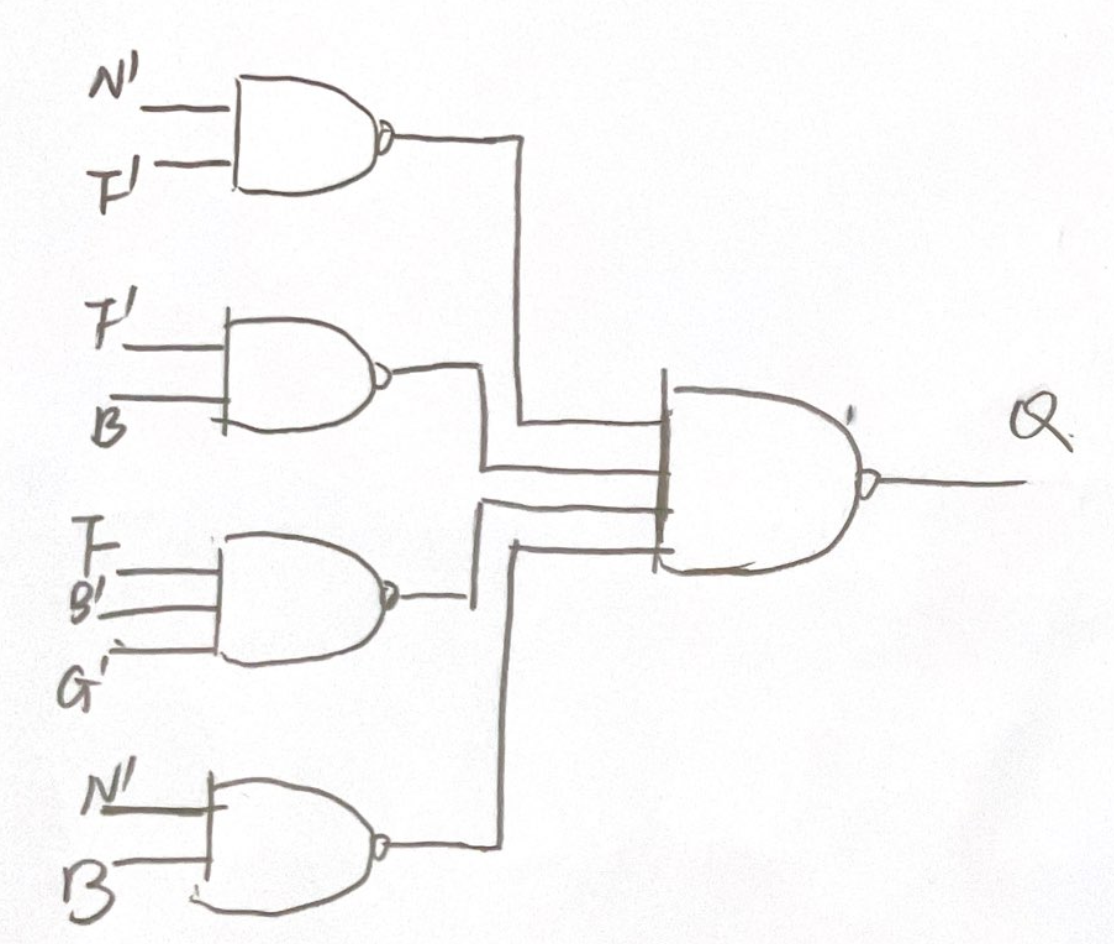 N'
F'
F'
B
F
B'
G'
N'
B
Q.